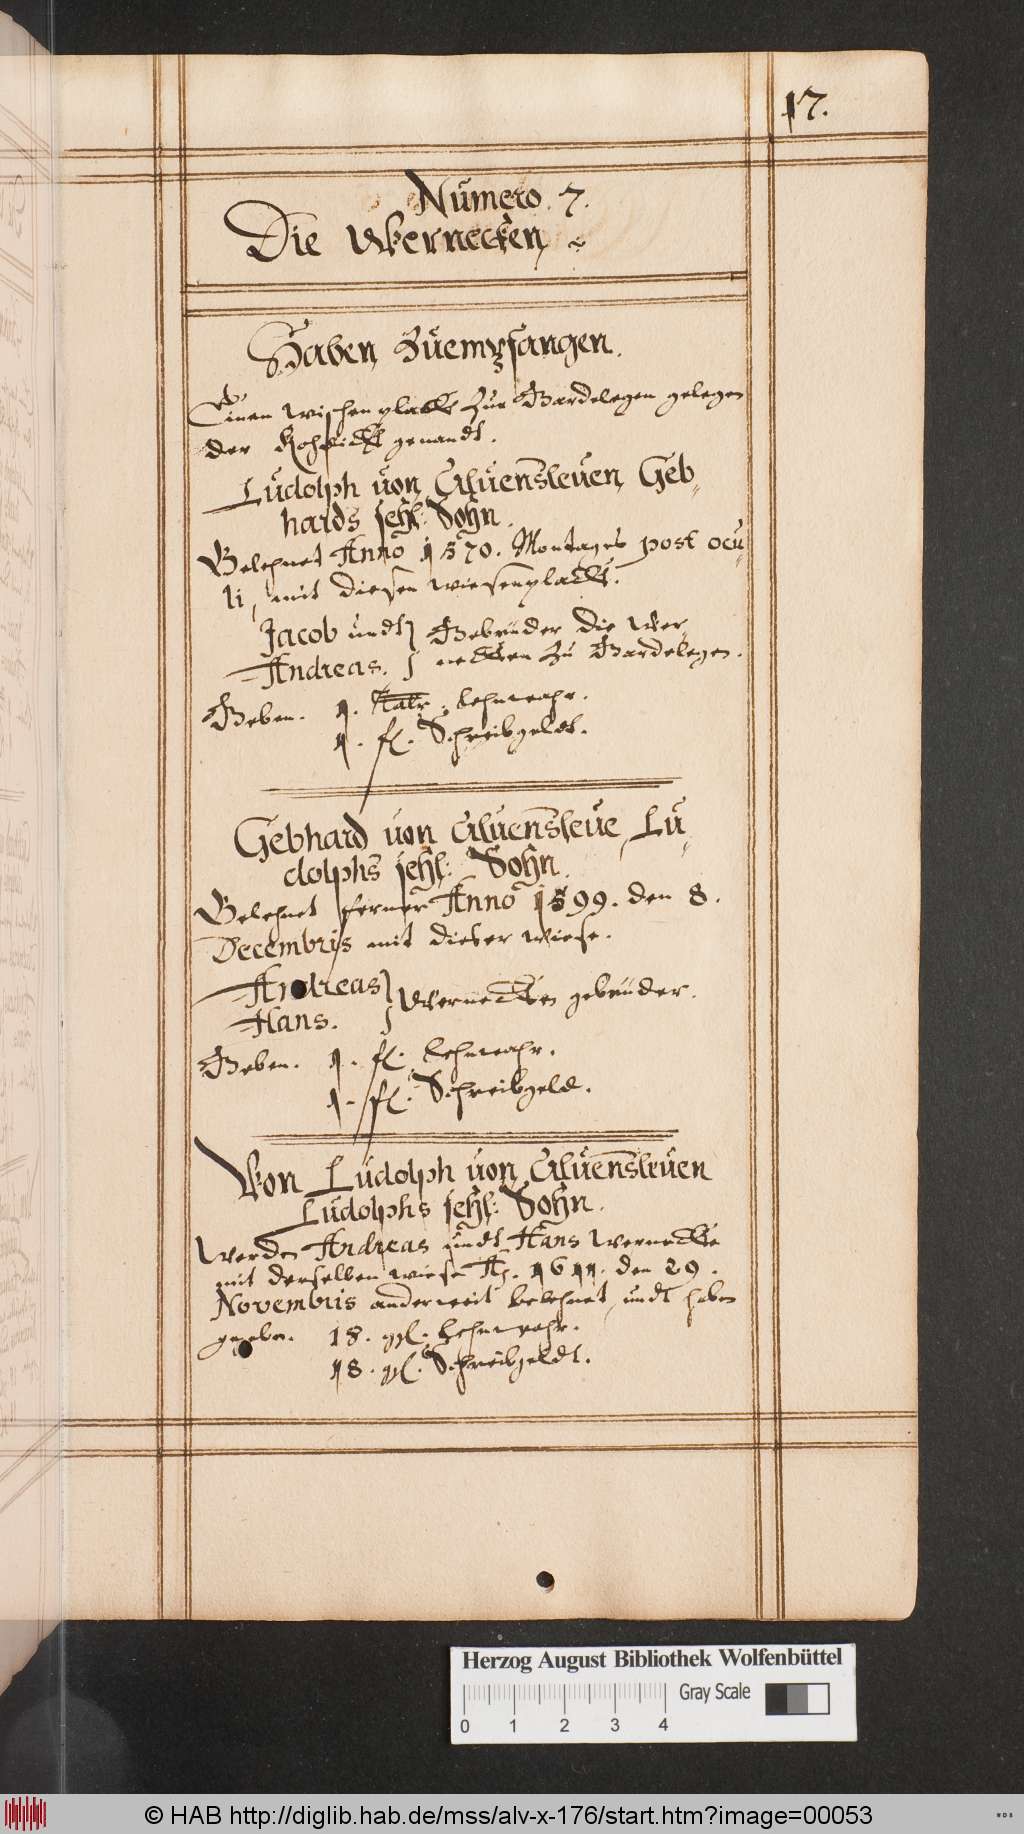 17.
Numero. 7.
Die Wernecken
Haben Zuempfangen.
Einen wischenplack Zur Gardelegen gelegen
der genandt.
Ludolph von Alvensleven Geb-
hards sehl: Sohn.
Belehnet Anno 1570. Montages post ocu-
li, mit diesen wiesenplack.
Jacob undt Gebrüder die Wer,
Andreas. necken Zu Gardelegen.
Geben. 1. Lehnwahr.
1. fl. Schreibgeldt.
Gebhard von Alvensleve, Lu-
dolphs sehl: Sohn.
Belehnet ferner Anno 1599. den 8.
Decembris mit dieser wiese.
Andreas Wernecken gebrüder.
Hans.
Geben. 1. fl. Lehnwahr.
1. fl. Schreibgeld.
Von Ludolph von Alvensleven
Ludolphs sehl: Sohn.
Werden Andreas undt Hans Wernecke
mit derselben wiese Ao. 1611. den 29.
Novembris anderweit belehnet, undt haben
gegeben. 18. gl. Lehnwahr.
18. gl. Schreibgeldt.
Herzog August Bibliothek Wolfenbüttel
Gray Scale
0 1 2 3 4
© HAB http://diglib.hab.de/mss/alv-x-176/start.htm?image=00053